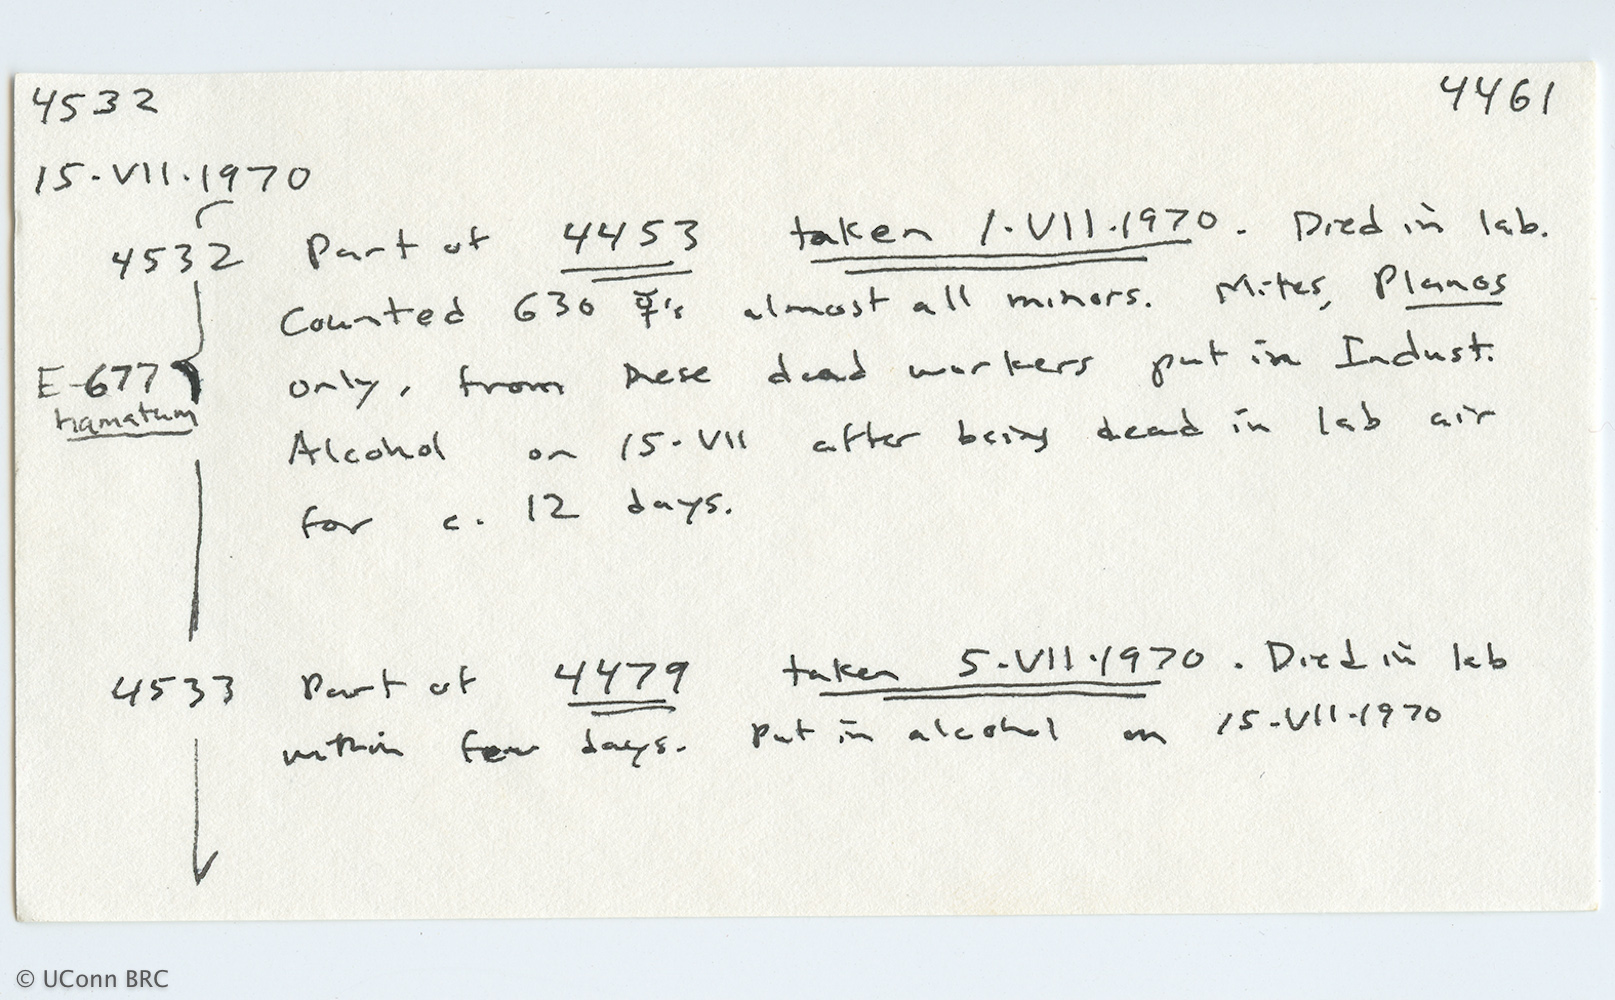 4532 4461
15-VII.1970
4532 Part of 4453 taken 1.VII.1970. Died in lab.
Counted 630 ☿'s almost all minors. Mites, Planos
E-677 only, from these dead workers put in Indust.
hamatum
Alcohol on 15-VII after being dead in lab air
for c. 12 days.
4533 Part of 4479 taken 5-VII.1970. Died in lab
within few days. Put in alcohol on 15-VII.1970
© UConn BRC